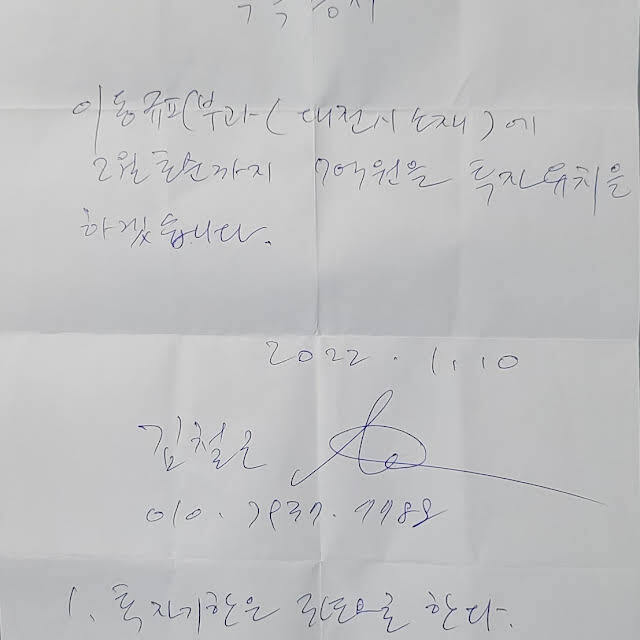 이동규피부과(대전시소재)에
2월초순까지 7억원을 투자유치를
하겠습니다.
2022. 1. 10
김철근
1. 투자기한은 으로 한다.